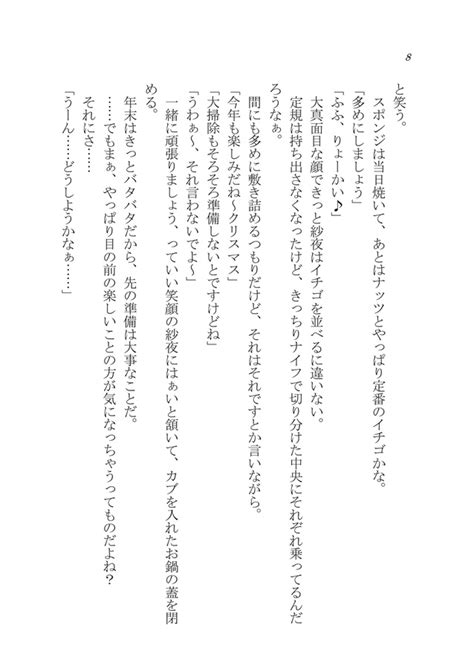 8
と笑う。
スポンジは当日焼いて、あとはナッツとやっぱり定番のイチゴかな。
「多めにしましょう」
「ふふ、りょーかい♪」
大真面目な顔できっと紗夜はイチゴを並べるに違いない。
定規は持ち出さなくなったけど、きっちりナイフで切り分けた中央にそれぞれ乗ってるんだ
ろうなぁ。
間にも多めに敷き詰めるつもりだけど、それはそれですとか言いながら。
「今年も楽しみだね～クリスマス」
「大掃除もそろそろ準備しないとですけどね」
「うわぁ～、それ言わないでよ～」
一緒に頑張りましょう、っていい笑顔の紗夜にはぁいと頷いて、カブを入れたお鍋の蓋を閉
める。
年末はきっとバタバタだから、先の準備は大事なことだ。
……でもまぁ、やっぱり目の前の楽しいことの方が気になっちゃうってものだよね？
それにさ……
「うーん……どうしようかなぁ……」